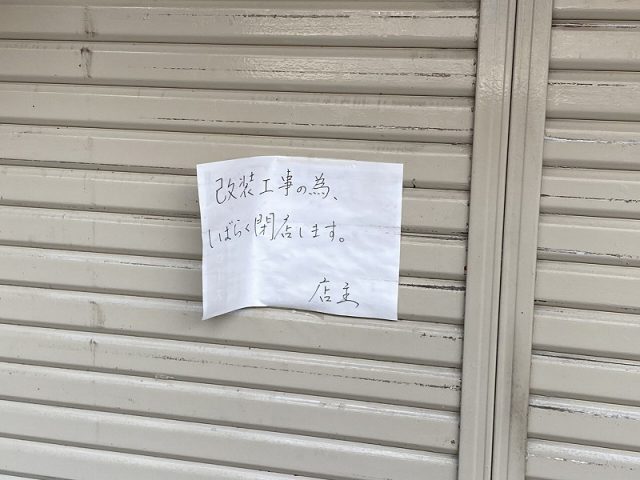 改装工事の為、
しばらく閉店します。
店主